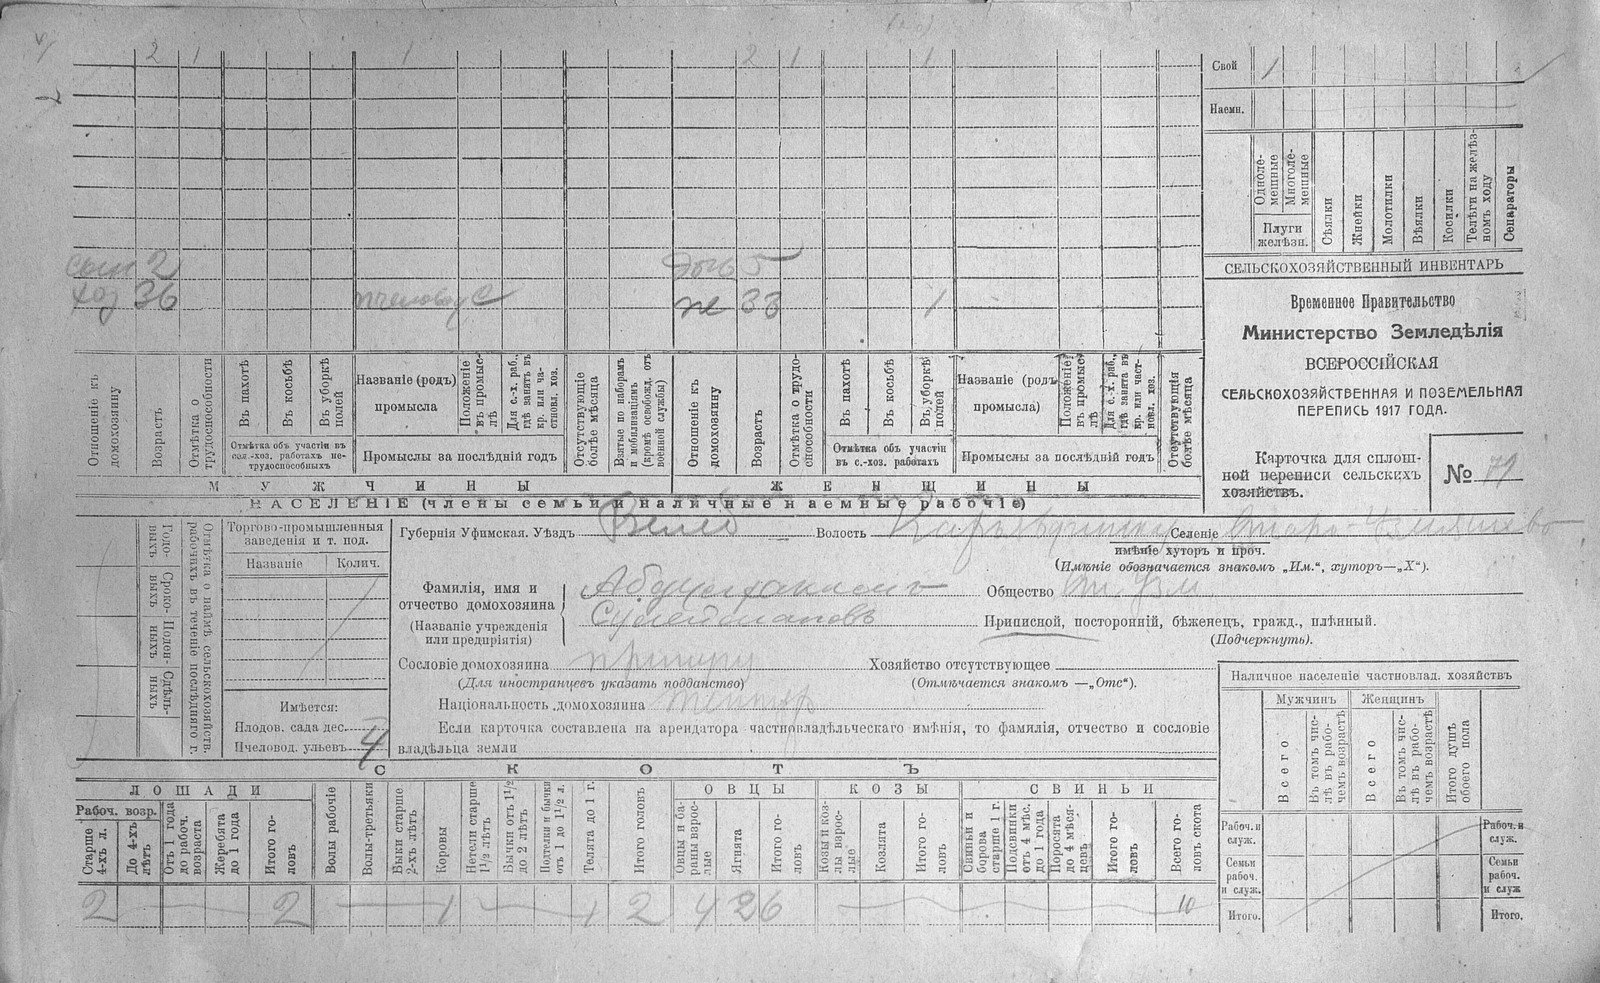 2 1 1 2 1 1
Свой 1
Наемн.
Одноле-
мешные
Многоле-
мешные
Плуги
желѣзн.
Сѣялки
Жнейки
Молотилки
Вѣялки
Косилки
Телѣги на желѣз-
номъ ходу
Сепараторы
СЕЛЬСКОХОЗЯЙСТВЕННЫЙ ИНВЕНТАРЬ
сын 2 дочь 5
хоз 36 пчеловод С же 33 1
Временное Правительство
Министерство Земледѣлія
ВСЕРОССІЙСКАЯ
СЕЛЬСКОХОЗЯЙСТВЕННАЯ И ПОЗЕМЕЛЬНАЯ
ПЕРЕПИСЬ 1917 ГОДА.
Карточка для сплош-
ной переписи сельскихъ
хозяйствъ.
№ 79
Отношеніе къ
домохозяину
Возрастъ
Отмѣтка о
трудоспособности
Въ пахотѣ
Въ косьбѣ
Въ уборкѣ
полей
Отмѣтка объ участіи въ
сел.-хоз. работахъ не-
трудоспособныхъ
Названіе (родъ)
промысла
Положеніе
въ промыс-
лѣ
Для с.-х. раб.,
гдѣ занятъ въ
кр. или ча-
стновл. хоз.
Промыслы за послѣдній годъ
Отсутствующіе
болѣе мѣсяца
Взятые по наборамъ
и мобилизаціямъ
(кромѣ освобожд. отъ
военной службы)
Отношеніе къ
домохозяину
Возрастъ
Отмѣтка о трудо-
способности
Въ пахотѣ
Въ косьбѣ
Въ уборкѣ
полей
Отмѣтка объ участіи
въ с.-хоз. работахъ
Названіе (родъ
промысла)
Положеніе
въ промыс-
лѣ
Для с.-х. раб.,
гдѣ занята въ
кр. или част-
новл. хоз.
Промыслы за послѣдній годъ
Отсутствующія
болѣе мѣсяца
МУЖЧИНЫ ЖЕНЩИНЫ
НАСЕЛЕНІЕ (члены семьи и наличные наемные рабочіе)
Годо-
выхъ
Сроко-
выхъ
Поден-
ныхъ
Сдѣль-
ныхъ
Отмѣтка о наймѣ сельскохозяйств.
рабочихъ въ теченіе послѣдняго г.
Торгово-промышленныя
заведенія и т. под.
Названіе Колич.
Имѣется:
Плодов. сада дес.
Пчеловод. ульевъ 4
Губернія Уфимская. Уѣздъ Белеб Волость Селеніе
имѣніе хуторъ и проч.
(Имѣніе обозначается знакомъ „Им.“, хуторъ—„Х“).
Фамилія, имя и
отчество домохозяина
(Названіе учрежденія
или предпріятія)
Сулеймановъ
Общество
Приписной, посторонній, бѣженецъ, гражд., плѣнный.
(Подчеркнуть).
Сословіе домохозяина Хозяйство отсутствующее
(Для иностранцевъ указать подданство) (Отмѣчается знакомъ —„Отс“).
Національность домохозяина Тептяр
Если карточка составлена на арендатора частновладѣльческаго имѣнія, то фамилія, отчество и сословіе
владѣльца земли
Наличное населеніе частновлад. хозяйствъ
Мужчинъ Женщинъ
Всего
Въ томъ чис-
лѣ въ рабо-
чемъ возрастѣ
Всего
Въ томъ чис-
лѣ въ рабо-
чемъ возрастѣ
Итого душъ
обоего пола
Рабоч. и
служ.
Семьи
рабоч.
и служ.
Итого.
Рабоч. и
служ.
Семьи
рабоч.
и служ
Итого.
СКОТЪ
ЛОШАДИ
Рабоч. возр.
Старше
4-хъ л.
До 4-хъ
лѣтъ
Отъ 1 года
до рабоч.
возраста
Жеребята
до 1 года
Итого го-
ловъ
Волы рабочіе
Волы-третьяки
Быки старше
2-хъ лѣтъ
Коровы
Нетели старше
1½ лѣтъ
Бычки отъ 1½
до 2 лѣтъ
Подтелки и бычки
отъ 1 до 1½ л.
Телята до 1 г.
Итого головъ
ОВЦЫ
Овцы и ба-
раны взрос-
лые
Ягнята
Итого го-
ловъ
КОЗЫ
Козы и коз-
лы взрос-
лые
Козлята
Итого го-
ловъ
СВИНЬИ
Свиньи и
борова
старше 1 г.
Подсвинки
отъ 4 мѣс.
до 1 года
Поросята
до 4 мѣся-
цевъ
Итого го-
ловъ
Всего го-
ловъ скота
2 2 1 1 2 4 2 6 10